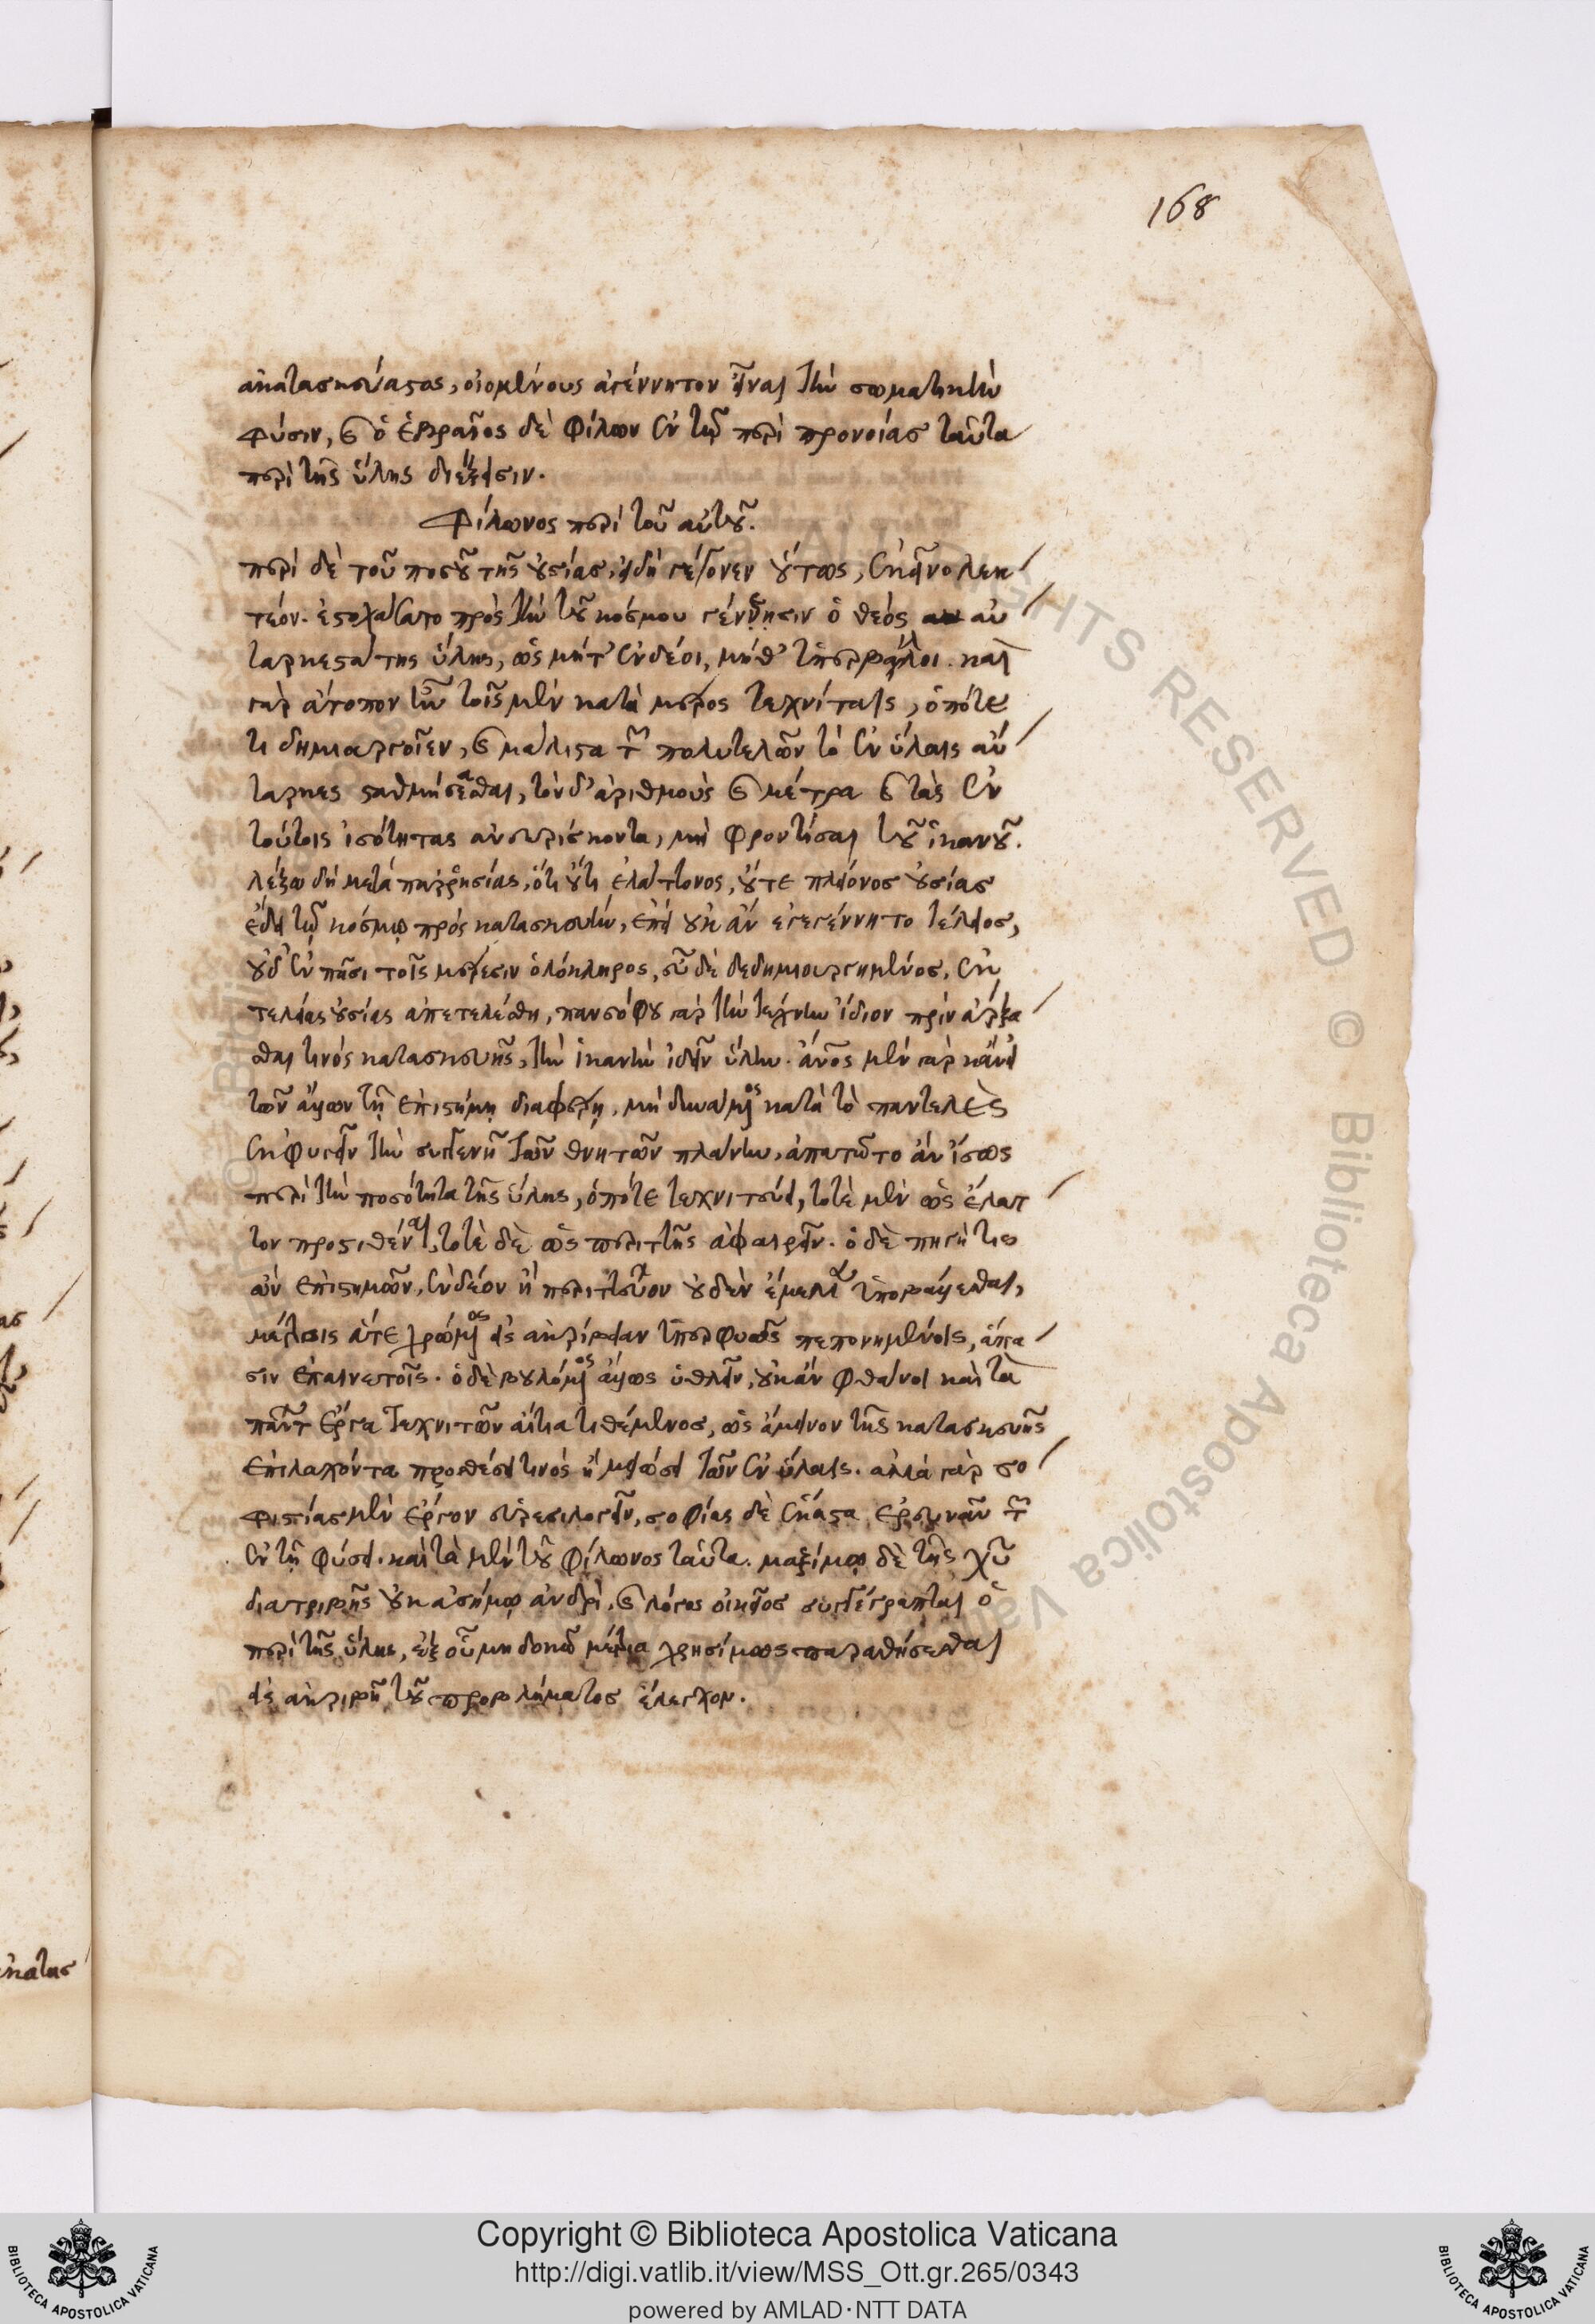 168
ἀκατασκευάστους, οἰομένους ἀγέννητον εἶναι τὴν σωματικὴν
φύσιν, καὶ ὁ ἑβραῖος δὲ Φίλων ἐν τῷ περὶ προνοίας ταῦτα
περὶ τῆς ὕλης διέξεισιν.
Φίλωνος περὶ τοῦ αὐτοῦ.
περὶ δὲ τοῦ ποσοῦ τῆς οὐσίας, εἰ δὴ γέγονεν οὕτως, ἐκεῖνο λεκ
τέον. ἐστοχάσατο πρὸς τὴν τοῦ κόσμου γέννησιν ὁ θεός αὐ
ταρκεστάτης ὕλης, ὡς μήτ' ἐνδέοι, μήθ' ὑπερβάλλοι. καὶ
γὰρ ἄτοπον ἦν τοῖς μὲν κατὰ μέρος τεχνίταις, ὁπότε
τι δημιουργοῖεν, καὶ μάλιστα τῶν πολυτελῶν τὸ ἐν ὕλαις αὔ
ταρκες σταθμήσασθαι, τὸν δ' ἀριθμοὺς καὶ μέτρα καὶ τὰς ἐν
τούτοις ἰσότητας ἀνευρίσκοντα, μὴ φροντίσαι τοῦ ἱκανοῦ.
λέξω δὴ μετὰ παρρησίας, ὅτι οὔτι ἐλάττονος, οὔτε πλείονος οὐσίας
ἔδει τῷ κόσμῳ πρὸς κατασκευήν, ἐπεὶ οὐκ ἂν ἐγεγέννητο τέλειος,
οὐδ' ἐν πᾶσι τοῖς μέρεσιν ὁλόκληρος, εὖ δὲ δεδημιουργημένος, ἐκ
τελείας οὐσίας ἀπετελέσθη, πανσόφου γὰρ τὴν τέχνην ἴδιον πρὶν ἄρξα
σθαι τινὸς κατασκευῆς, τὴν ἱκανὴν ἰδεῖν ὕλην. ἄνος μὲν γὰρ κἂν εἰ
τῶν ἄλλων τῇ ἐπιστήμῃ διαφέρῃ, μὴ δυνάμενος κατὰ τὸ παντελὲς
ἐκφυγεῖν τὴν συγγενῆ τῶν θνητῶν πλάνην, ἀπατῷτο ἂν ἴσως
περὶ τὴν ποσότητα τῆς ὕλης, ὁπότε τεχνιτεύει, τοτὲ μὲν ὡς ἔλατ
τον προστιθέναι, τοτὲ δὲ ὡς περιττῆς ἀφαιρεῖν. ὁ δὲ πηγή τις
ὢν ἐπιστημῶν, ἐνδέον ἢ περιττεῦον οὐδὲν ἔμελλεν ὑποβάλλεσθαι,
μέτροις ἅτε χρώμενος εἰς ἀκρίβειαν ὑπερφυῶς πεπονημένοις, ἅπα
σιν ἐπαινετοῖς. ὁ δὲ βουλόμενος ἄλλως ὑθλεῖν, οὐκ ἂν φθάνοι καὶ τὰ
πάντων ἔργα τεχνιτῶν αἴτια τιθέμενος, ὡς ἄμεινον τῆς κατασκευῆς
ἐπιλαχόντα προσθέσει τινὸς ἢ μειώσει τῶν ἐν ὕλαις. ἀλλὰ γὰρ σο
φιστείας μὲν ἔργον εὑρεσιλογεῖν, σοφίας δὲ ἕκαστα ἐρευνᾶν τῶν
ἐν τῇ φύσει. καὶ τὰ μὲν τοῦ Φίλωνος ταῦτα. μαξίμῳ δὲ τῆς χῦ
διατριβῆς οὐκ ἀσήμῳ ἀνδρὶ, καὶ λόγος οἰκεῖος συγγέγραπται ὁ
περὶ τῆς ὕλης, ἐξ οὗ μοι δοκῶ μέτρια χρησίμως παραθήσεσθαι
εἰς ἀκριβῆ τοῦ προβλήματος ἔλεγχον.
Copyright © Biblioteca Apostolica Vaticana
http://digi.vatlib.it/view/MSS_Ott.gr.265/0343
powered by AMLAD·NTT DATA
BIBLIOTECA APOSTOLICA VATICANA
BIBLIOTECA APOSTOLICA VATICANA